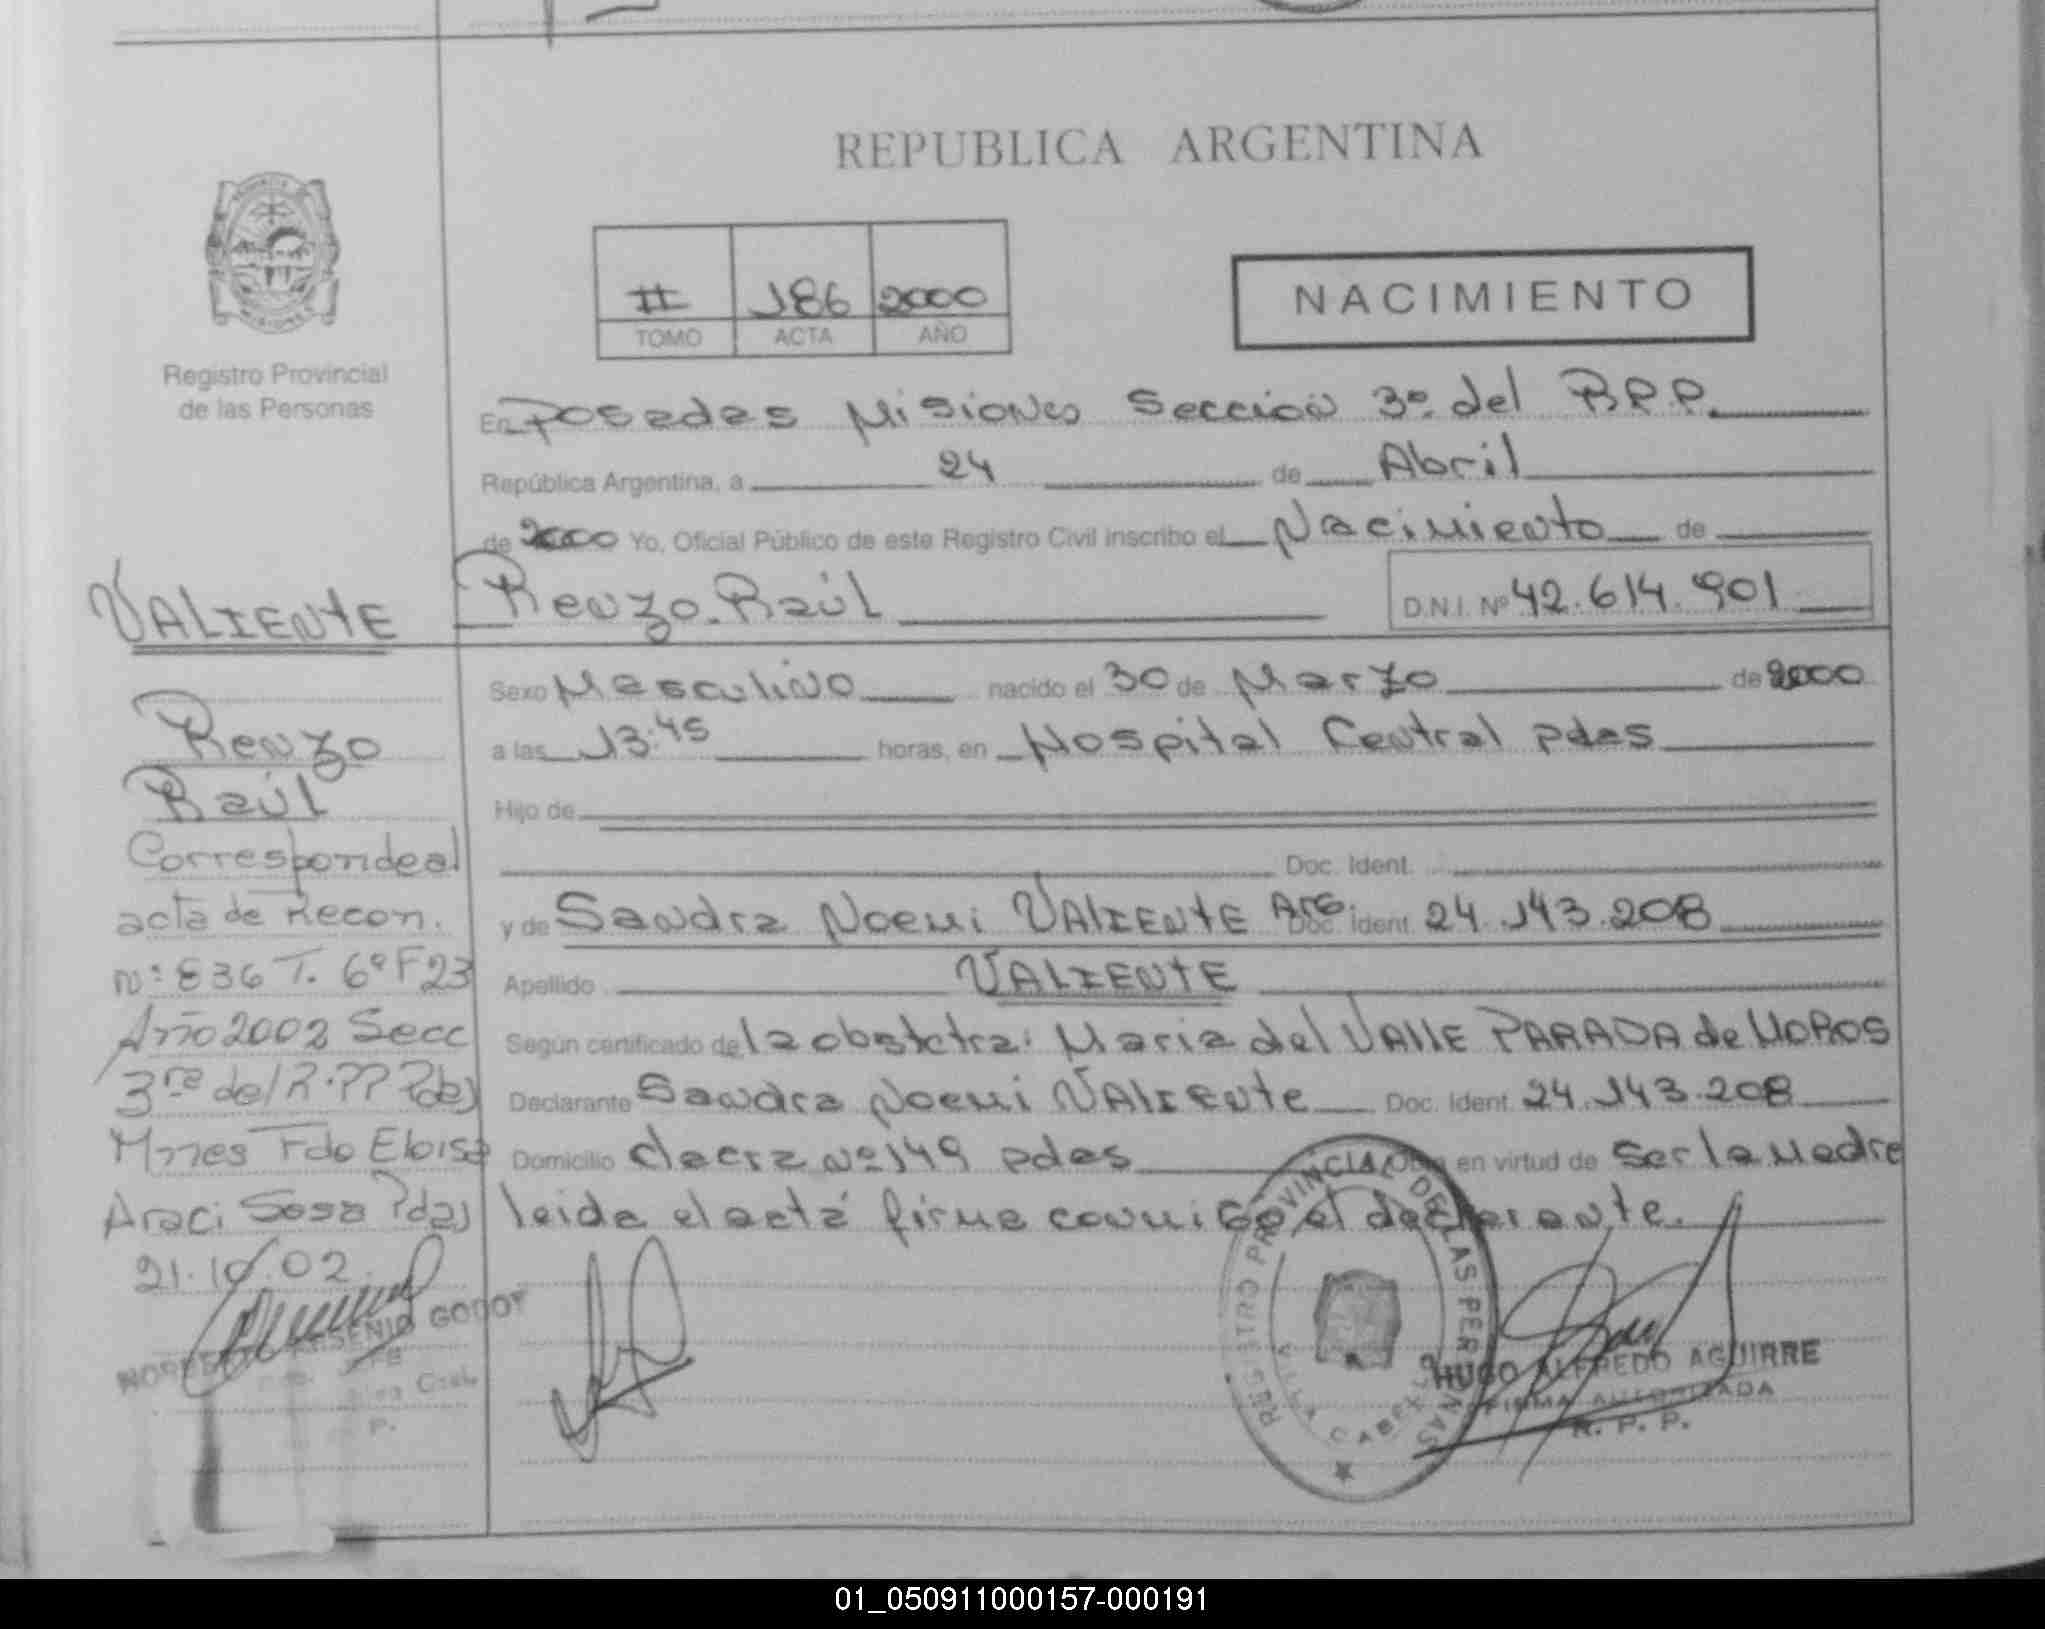 REPUBLICA ARGENTINA
II 186 2000
TOMO ACTA AÑO
NACIMIENTO
Registro Provincial
de las Personas
En Posadas Misiones Sección 3º del R.P.P.
República Argentina, a 24 de Abril
de 2000 Yo, Oficial Público de este Registro Civil inscribo el Nacimiento de
Renzo Raúl D.N.I. Nº 42.614.901
Sexo Masculino nacido el 30 de Marzo de 2000
a las 13:45 horas, en Hospital Central Pdas
Hijo de
Doc. Ident.
y de Sandra Noemi VALIENTE Arg. Doc. Ident. 24.143.208
Apellido VALIENTE
Según certificado de la obstetra: Maria del VALLE PARADA de MOROS
Declarante Sandra Noemi VALIENTE Doc. Ident. 24.143.208
Domicilio chacra Nº 149 pdas en virtud de ser la madre
leida el acta firma conmigo el declarante.
VALIENTE
Renzo
Raúl
Corresponde al
acta de Recon.
nº: 836 T. 6º F 23
Año 2002 Secc
3ra del R.PP Pdas
Mnes Fdo Eloisa
Araci Sosa Pdas
21.10.02
ARSENIO GODOY
REGISTRO PROVINCIAL DE LAS PERSONAS
HUGO ALFREDO AGUIRRE
FIRMA AUTORIZADA
R. P. P.
01_050911000157-000191